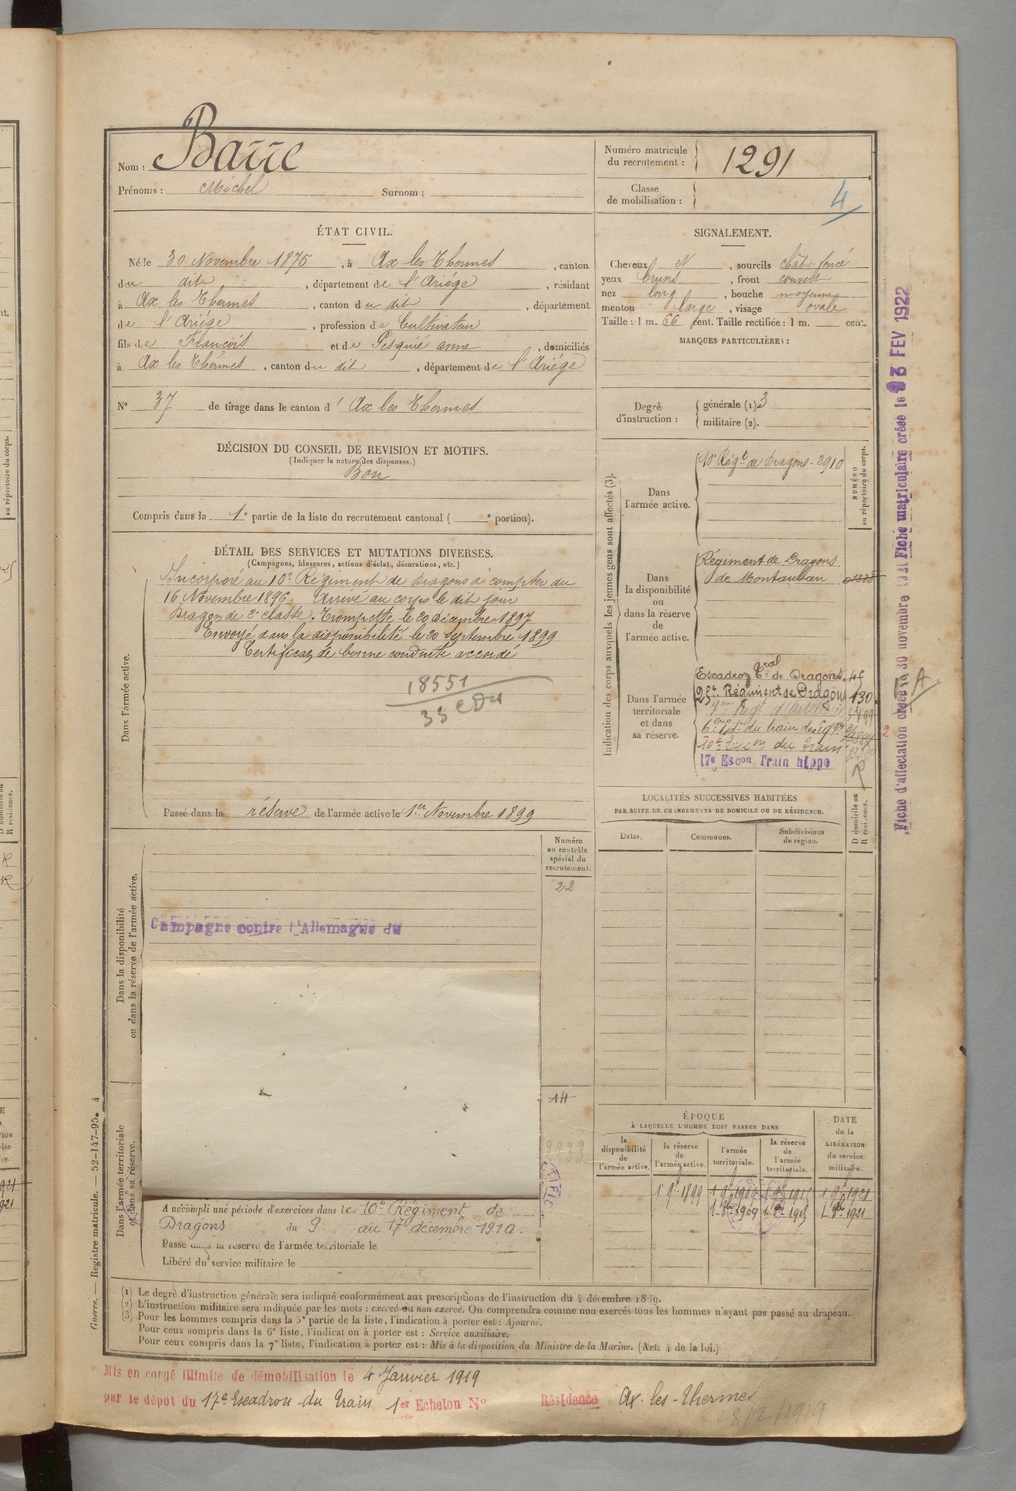 Nom : Barre
Prénoms : Michel Surnom :
Numéro matricule du recrutement : 1291
Classe de mobilisation :
4
ÉTAT CIVIL.
Né le 30 Novembre 1875, à Ax les Thermes, canton
du dit, département de l'Ariège, résidant
à Ax les Thermes, canton du dit, département
de l'Ariège, profession de Cultivateur
fils de François et de Pesquié anne, domiciliés
à Ax les Thermes, canton du dit, département de l'Ariège
N° 37 de tirage dans le canton d' Ax les Thermes
SIGNALEMENT.
Cheveux N, sourcils chât. foncé
yeux bruns, front couvert
nez long, bouche moyenne
menton large, visage ovale
Taille : 1 m. 66 cent. Taille rectifiée : 1 m. cent.
MARQUES PARTICULIÈRES :
Degré d'instruction : générale (1) 3
militaire (2).
DÉCISION DU CONSEIL DE REVISION ET MOTIFS.
(Indiquer la nature des dispenses.)
Bon
Compris dans la 1e partie de la liste du recrutement cantonal ( e portion).
DÉTAIL DES SERVICES ET MUTATIONS DIVERSES.
(Campagnes, blessures, actions d'éclat, décorations, etc.)
Dans l'armée active.
Incorporé au 10e Régiment de dragons à compter du
16 Novembre 1896. Arrivé au corps le dit jour
Dragon de 2e classe. Trompette le 20 décembre 1897
Envoyé dans la disponibilité le 20 septembre 1899
Certificat de bonne conduite accordé
18551
Passé dans la réserve de l'armée active le 1er Novembre 1899
Indication des corps auxquels les jeunes gens sont affectés (3).
NUMÉRO au répertoire du corps.
Dans l'armée active.
10e Régt de Dragons - 2910
Dans la disponibilité ou dans la réserve de l'armée active.
Régiment de Dragons
de Montauban
Dans l'armée territoriale et dans sa réserve.
Escadron Tral de Dragons 45
Régiment de Dragons 130
du train
du Train
17e Escon Train hippo
Fiche d'affectation créée le 30 novembre Fiche matriculaire créée le FEV 1922
LOCALITÉS SUCCESSIVES HABITÉES
PAR SUITE DE CHANGEMENTS DE DOMICILE OU DE RÉSIDENCE.
Dates. Communes. Subdivisions de région. D domicile ou R résidence.
Numéro au contrôle spécial du recrutement.
22
Dans la disponibilité ou dans la réserve de l'armée active.
Campagne contre l'Allemagne du
Dans l'armée territoriale et dans sa réserve.
A accompli une période d'exercices dans le 10e Régiment de
Dragons du 9 au 17 décembre 1910.
Passé dans la réserve de l'armée territoriale le
Libéré du service militaire le
ÉPOQUE
À LAQUELLE L'HOMME DOIT PASSER DANS
DATE de la LIBÉRATION du service militaire.
la disponibilité de l'armée active.
la réserve de l'armée active.
l'armée territoriale.
la réserve de l'armée territoriale.
1 9e 1899
Guerre. — Registre matricule. — 52-147-95. 4
(1) Le degré d'instruction générale sera indiqué conformément aux prescriptions de l'instruction du 4 décembre 1889.
(2) L'instruction militaire sera indiquée par les mots : exercé ou non exercé. On comprendra comme non exercés tous les hommes n'ayant pas passé au drapeau.
(3) Pour les hommes compris dans la 5e partie de la liste, l'indication à porter est : Ajourné.
Pour ceux compris dans la 6e liste, l'indication à porter est : Service auxiliaire.
Pour ceux compris dans la 7e liste, l'indication à porter est : Mis à la disposition du Ministre de la Marine. (Art. 4 de la loi.)
Mis en congé illimité de démobilisation le 4 Janvier 1919
par le dépôt du 17e Escadron du Train 1er Echelon N° Résidence Ax-les-Thermes